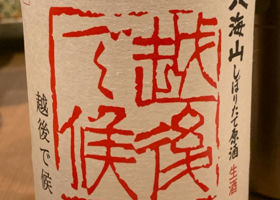 八海山しぼりたて原酒 生酒
越後で候
越後で候